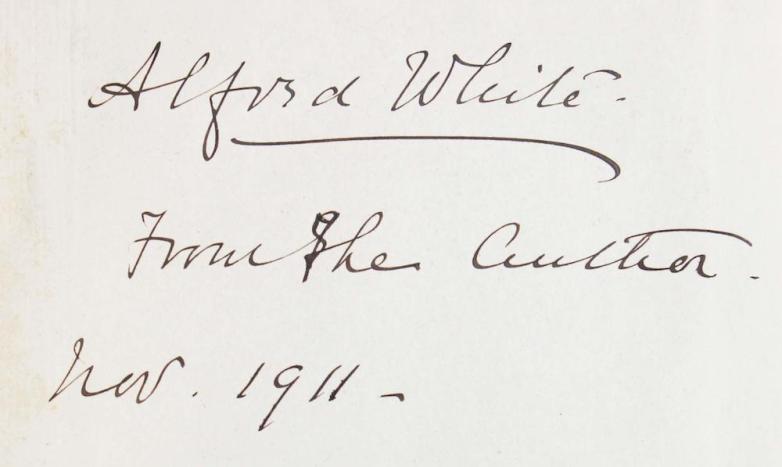 Alford White.
From the Author.
Nov. 1911 -